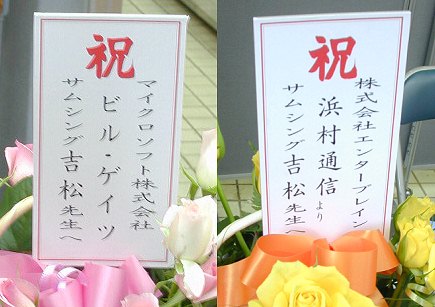 祝
マイクロソフト株式会社
ビル・ゲイツ
サムシング吉松先生へ
祝
株式会社エンターブレイン
浜村通信より
サムシング吉松先生へ